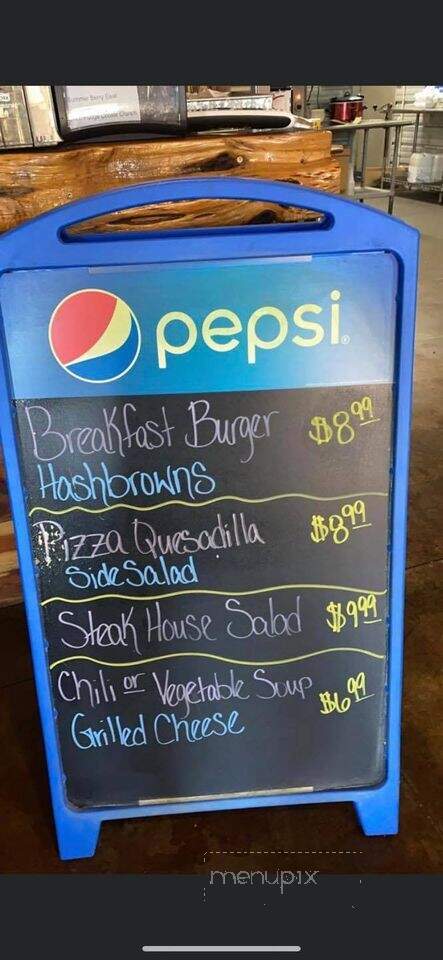 pepsi
Breakfast Burger $8.99
Hashbrowns
Pizza Quesadilla $8.99
Side Salad
Steak House Salad $9.99
Chili or Vegetable Soup $6.99
Grilled Cheese
menupix